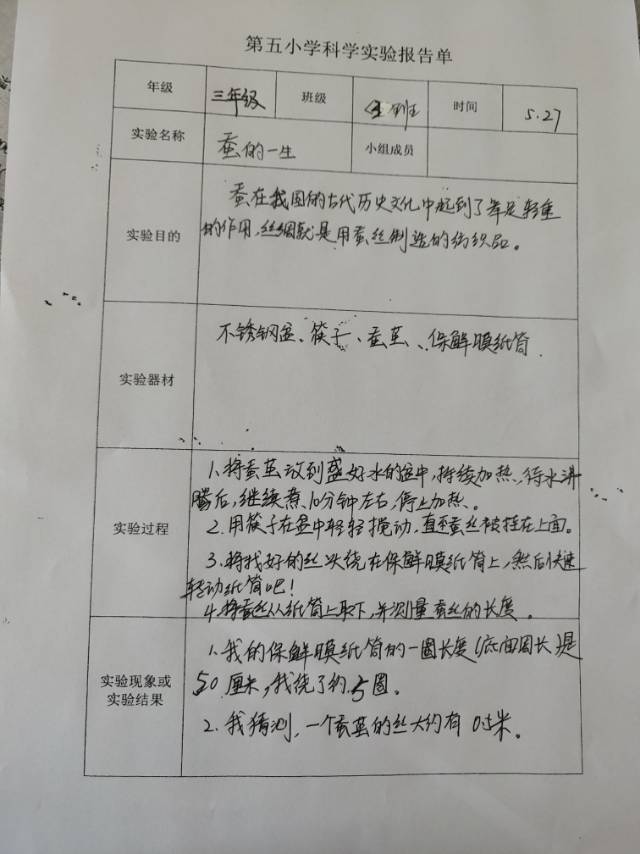 第五小学科学实验报告单
年级 三年级 班级 班 时间 5.27
实验名称 蚕的一生 小组成员
实验目的
蚕在我国的古代历史文化中起到了举足轻重
的作用,丝绸就是用蚕丝制造的纺织品。
实验器材
不锈钢盆、筷子、蚕茧、保鲜膜纸筒
实验过程
1.将蚕茧放到盛好水的盆中,持续加热,待水沸
腾后,继续煮10分钟左右,停止加热。
2.用筷子在盆中轻轻搅动,直至蚕丝被挂在上面。
3.将找好的丝头绕在保鲜膜纸筒上,然后快速
转动纸筒吧!
4.将蚕丝从纸筒上取下,并测量蚕丝的长度。
实验现象或
实验结果
1.我的保鲜膜纸筒的一圈长度(底面周长)是
50厘米,我绕了约5圈。
2.我猜测,一个蚕茧的丝大约有0.5米。